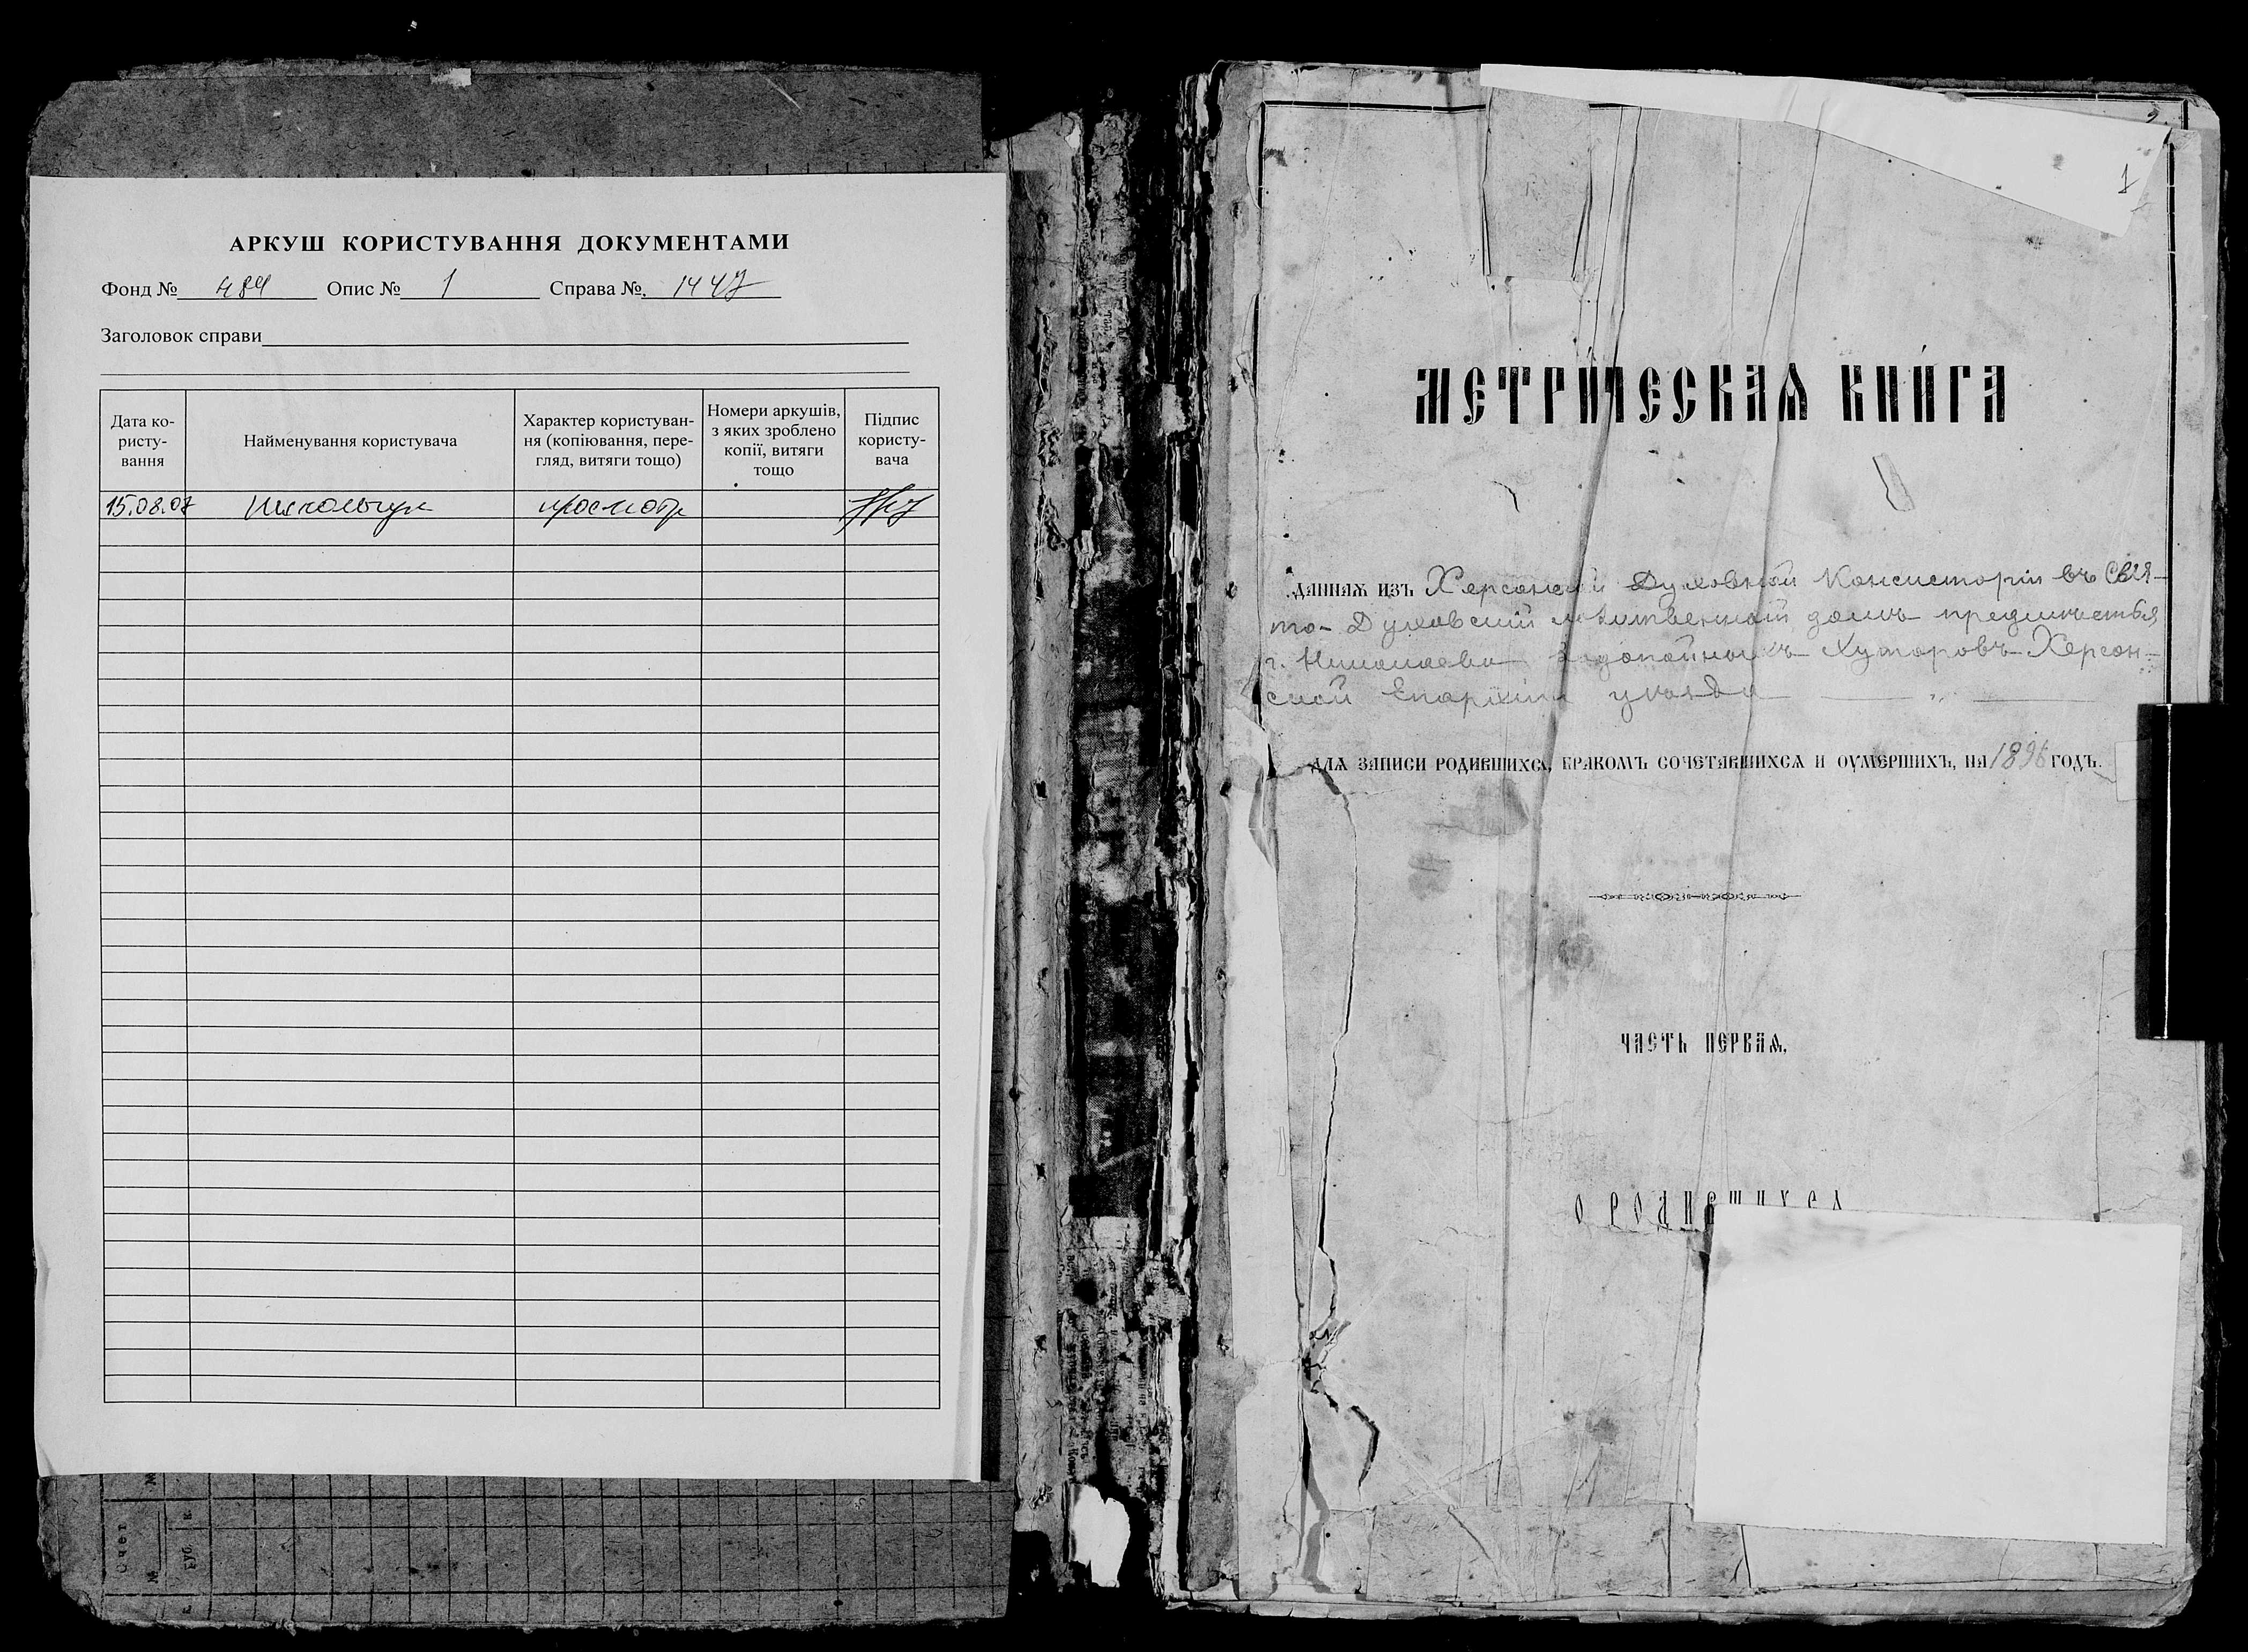 АРКУШ КОРИСТУВАННЯ ДОКУМЕНТАМИ
Фонд № 484 Опис № 1 Справа № 1447
Заголовок справи
Дата ко-
ристу-
вання
Найменування користувача
Характер користуван-
ня (копіювання, пере-
гляд, витяги тощо)
Номери аркушів,
з яких зроблено
копії, витяги
тощо
Підпис
користу-
вача
15.08.07 просмотр
1
МЕТРИЧЕСКАѦ КНИГА
ДАННАѦ ИЗЪ Херсонской Духовной Консисторіи въ Свя-
то-Духовский молитвенный домъ предмѣстья
г. Николаева Хуторовъ Херсон-
ской Епархіи уѣзда
ДЛѦ ЗАПИСИ РОДИВШИХСѦ, БРАКОМЪ СОЧЕТАВШИХСѦ И ОУМЕРШИХЪ, НА 1896 ГОДЪ.
ЧАСТЬ ПЕРВАѦ,
О РОДИВШИХСѦ
Счет
№
руб. к.